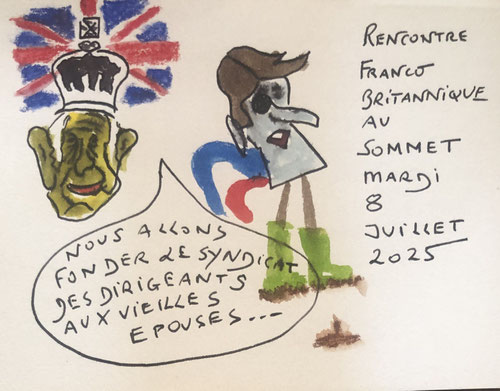 RENCONTRE
FRANCO
BRITANNIQUE
AU
SOMMET
MARDI
8
JUILLET
2025
NOUS ALLONS
FONDER LE SYNDICAT
DES DIRIGEANTS
AUX VIEILLES
EPOUSES...